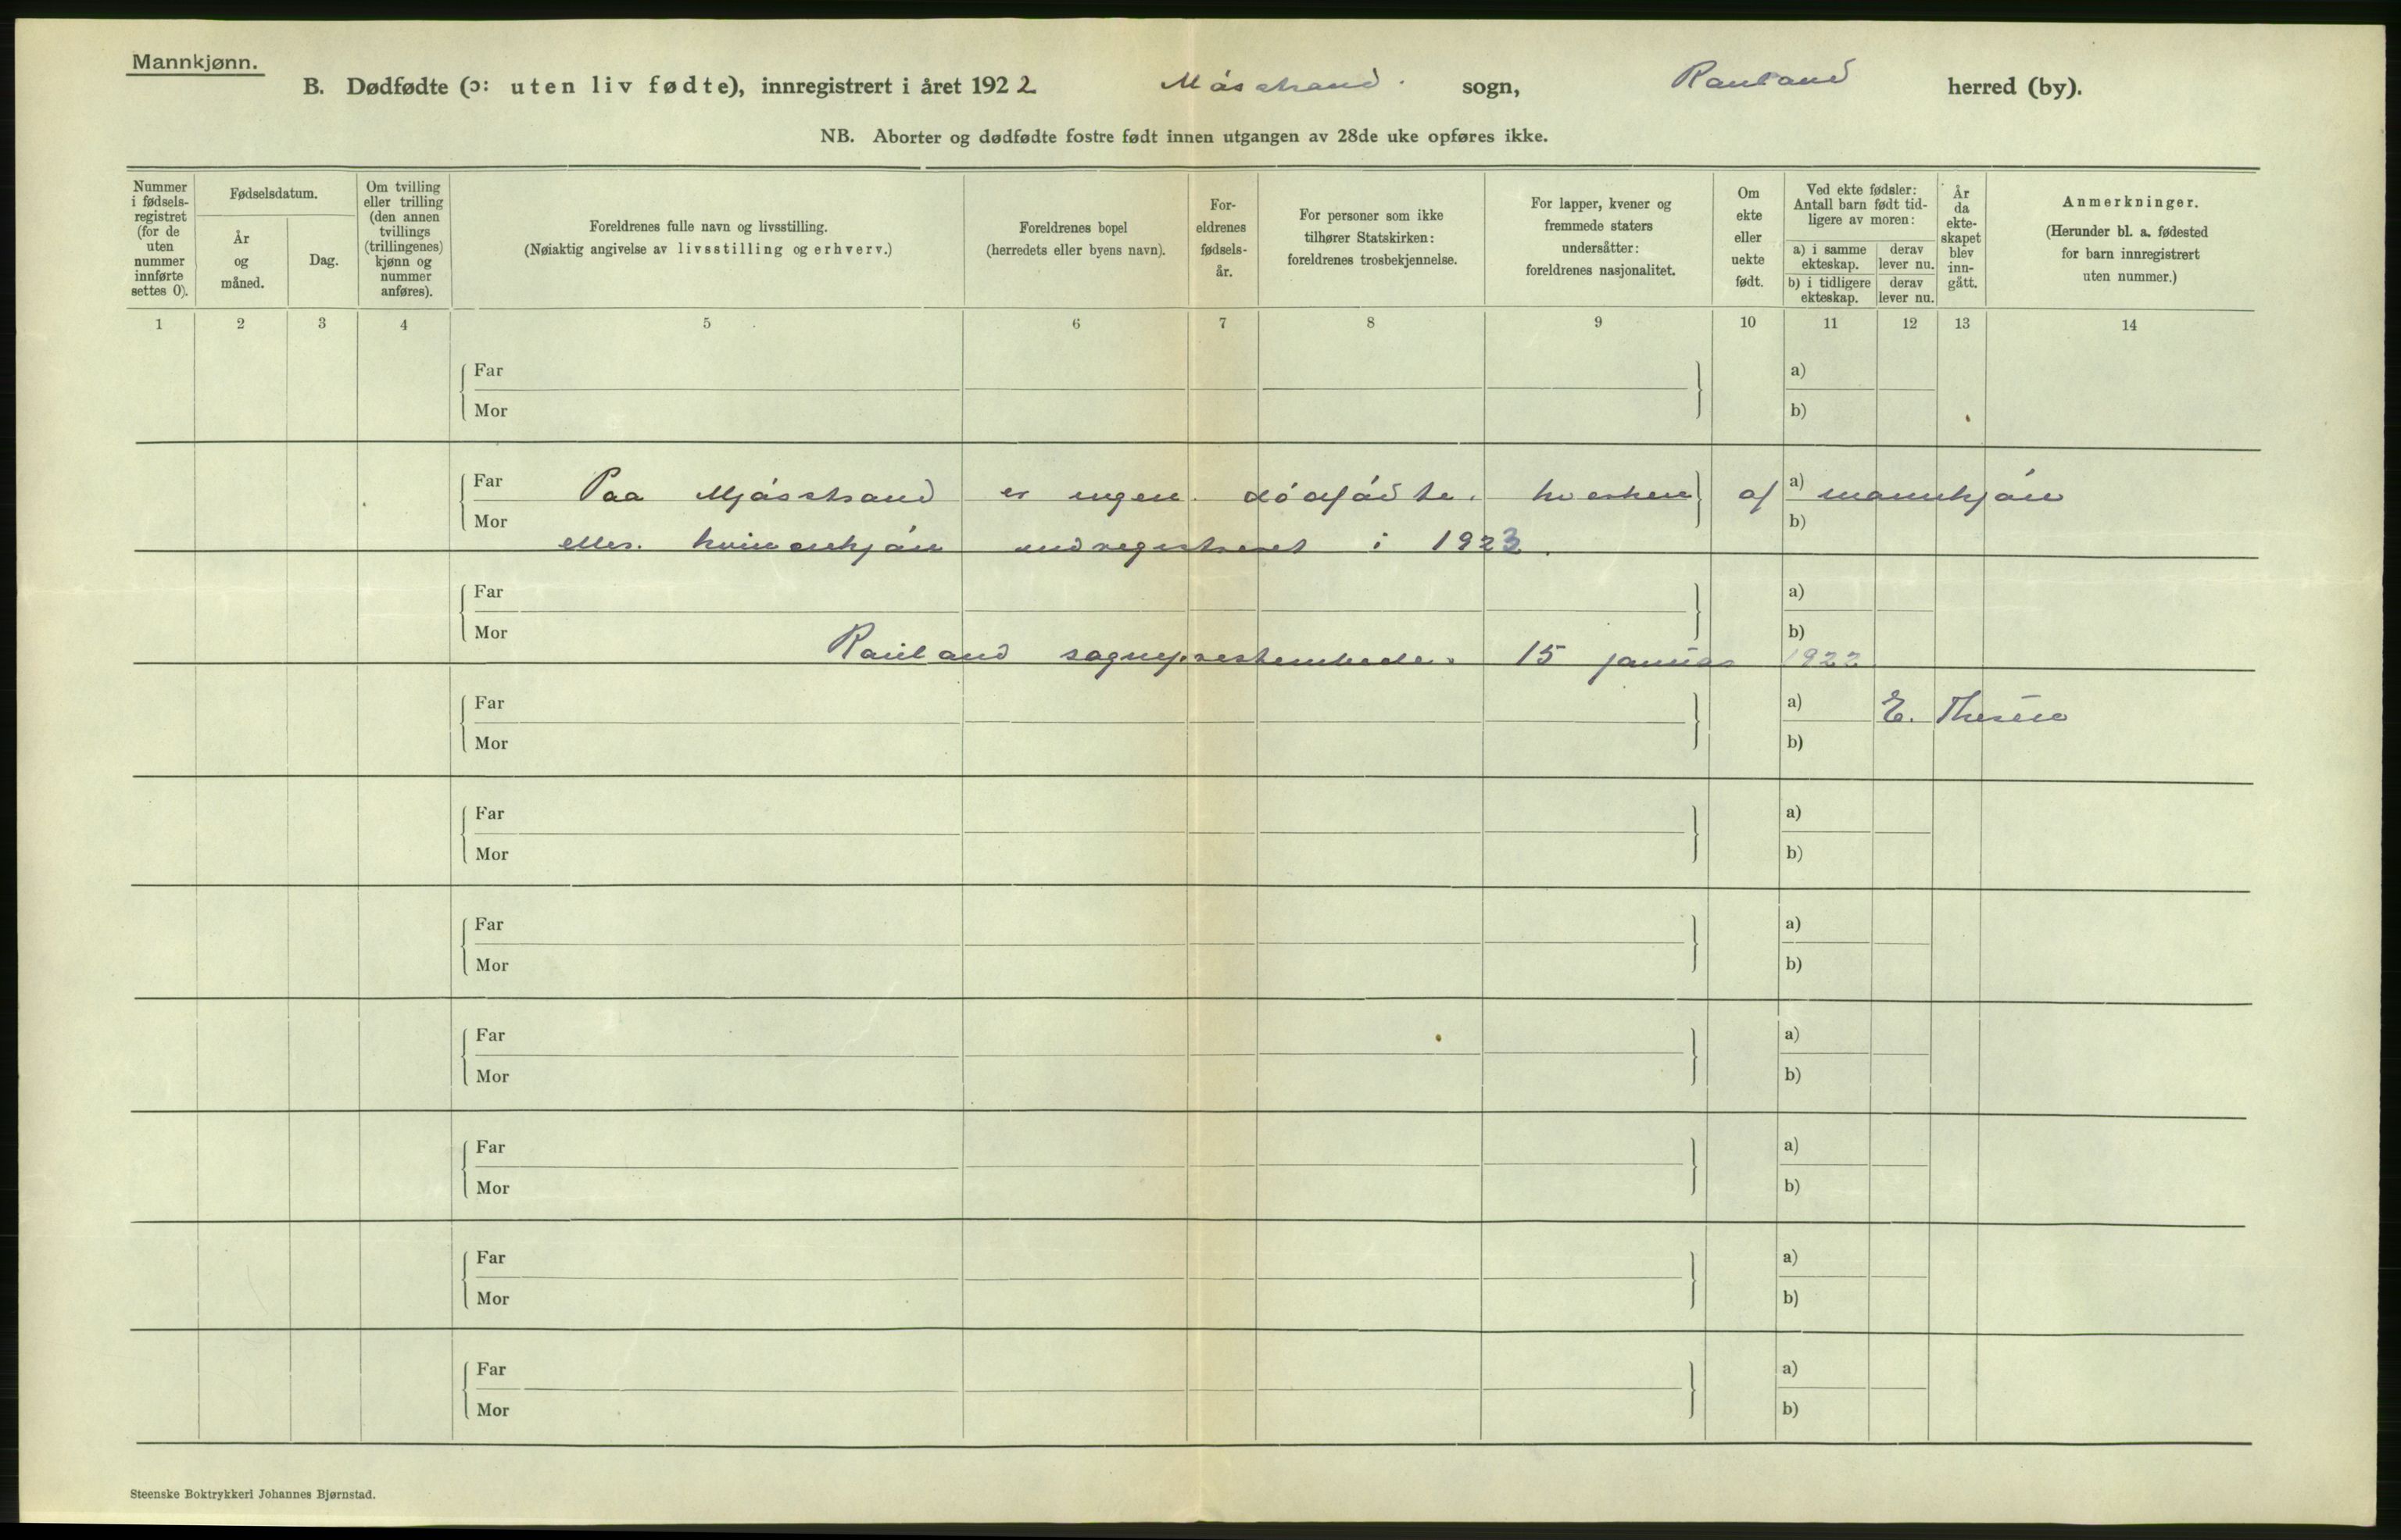 Mannkjønn.
B. Dødfødte (ɔ: uten liv fødte), innregistrert i året 1922 Mösstrand. sogn, Rauland herred (by).
NB. Aborter og dødfødte fostre født innen utgangen av 28de uke opføres ikke.
Nummer
i fødsels-
registret
(for de
uten
nummer
innførte
settes 0).
Fødselsdatum.
År
og
måned.
Dag.
Om tvilling
eller trilling
(den annen
tvillings
(trillingenes)
kjønn og
nummer
anføres).
Foreldrenes fulle navn og livsstilling.
(Nøiaktig angivelse av livsstilling og erhverv.)
Foreldrenes bopel
(herredets eller byens navn).
For-
eldrenes
fødsels-
år.
For personer som ikke
tilhører Statskirken:
foreldrenes trosbekjennelse.
For lapper, kvener og
fremmede staters
undersåtter:
foreldrenes nasjonalitet.
Om
ekte
eller
uekte
født.
Ved ekte fødsler:
Antall barn født tid-
ligere av moren:
a) i samme
ekteskap.
derav
lever nu.
b) i tidligere
ekteskap.
derav
lever nu.
År
da
ekte-
skapet
blev
inn-
gått.
Anmerkninger.
(Herunder bl. a. fødested
for barn innregistrert
uten nummer.)
1 2 3 4 5 6 7 8 9 10 11 12 13 14
Far a)
Mor b)
Far Paa Mjösstrand er ingen dödfödte hverken af a) mannkjön
Mor b)
eller kvinnekjön indregistreret i 1923.
Far a)
Mor b)
Rauland sogneprestembede 15 januar 1922
Far a) E. Thesen
Mor b)
Far a)
Mor b)
Far a)
Mor b)
Far a)
Mor b)
Far a)
Mor b)
Far a)
Mor b)
Far a)
Mor b)
Steenske Boktrykkeri Johannes Bjørnstad.